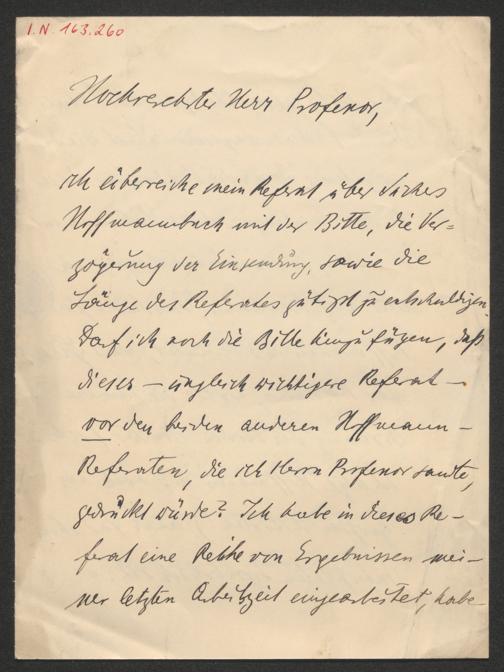 I.N. 163.260
Hochverehrter Herr Professor,
ich überreiche mein Referat über Suchers
Hoffmannbuch mit der Bitte, die Ver=
zögerung der Einsendung, sowie die
Länge des Referates gütigst zu entschuldigen.
Darf ich noch die Bitte hinzufügen, daß
dieses – ungleich wichtigere Referat –
vor den beiden anderen Hoffmann–
Referaten, die ich Herrn Professor sandte,
gedruckt würde? Ich habe in dieses Re–
ferat eine Reihe von Ergebnissen mei–
ner letzten Arbeitszeit eingearbeitet, habe